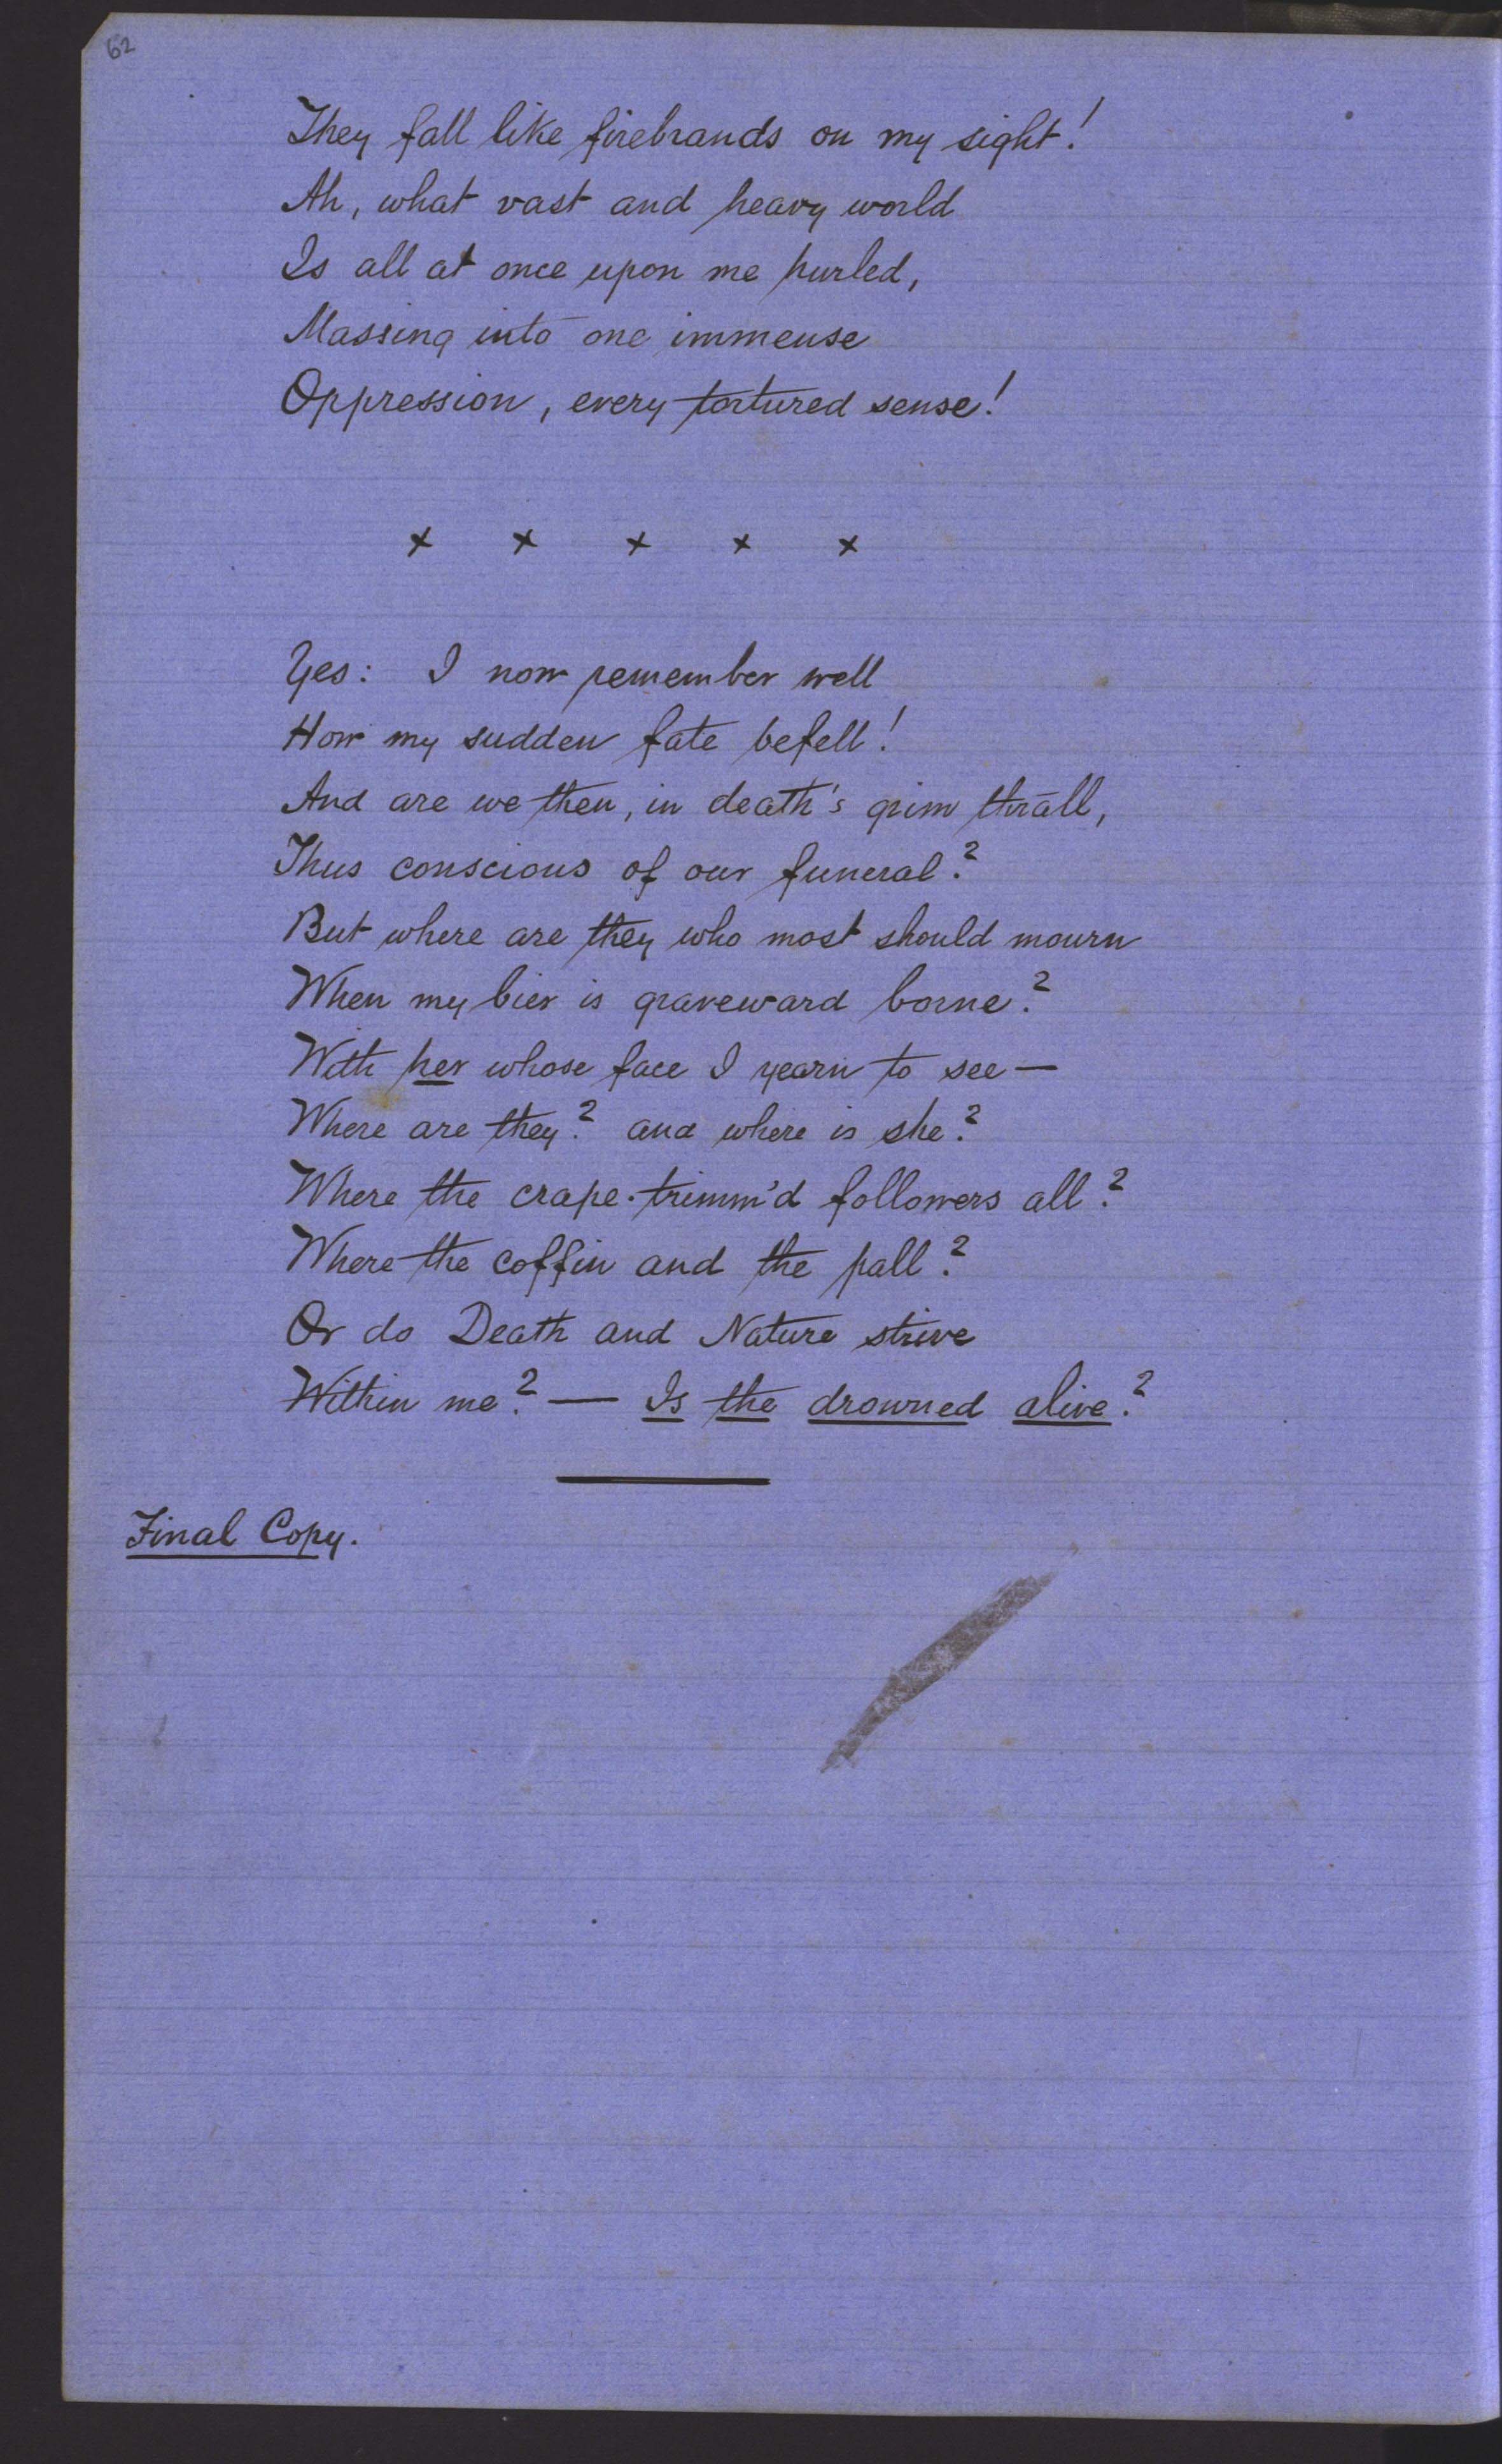 62
They fall like firebrands on my sight!
Ah, what vast and heavy world
Is all at once upon me hurled,
Massing into one immense
Oppression, every tortured sense!
x x x x x
Yes: I now remember well
How my sudden fate befell!
And are we then, in death's grim thrall,
Thus conscious of our funeral?
But where are they who most should mourn
When my bier is graveward borne?
With her whose face I yearn to see—
Where are they? and where is she?
Where the crape-trimm'd followers all?
Where the coffin and the pall?
Or do Death and Nature strive
Within me? — Is the drowned alive?
Final Copy.